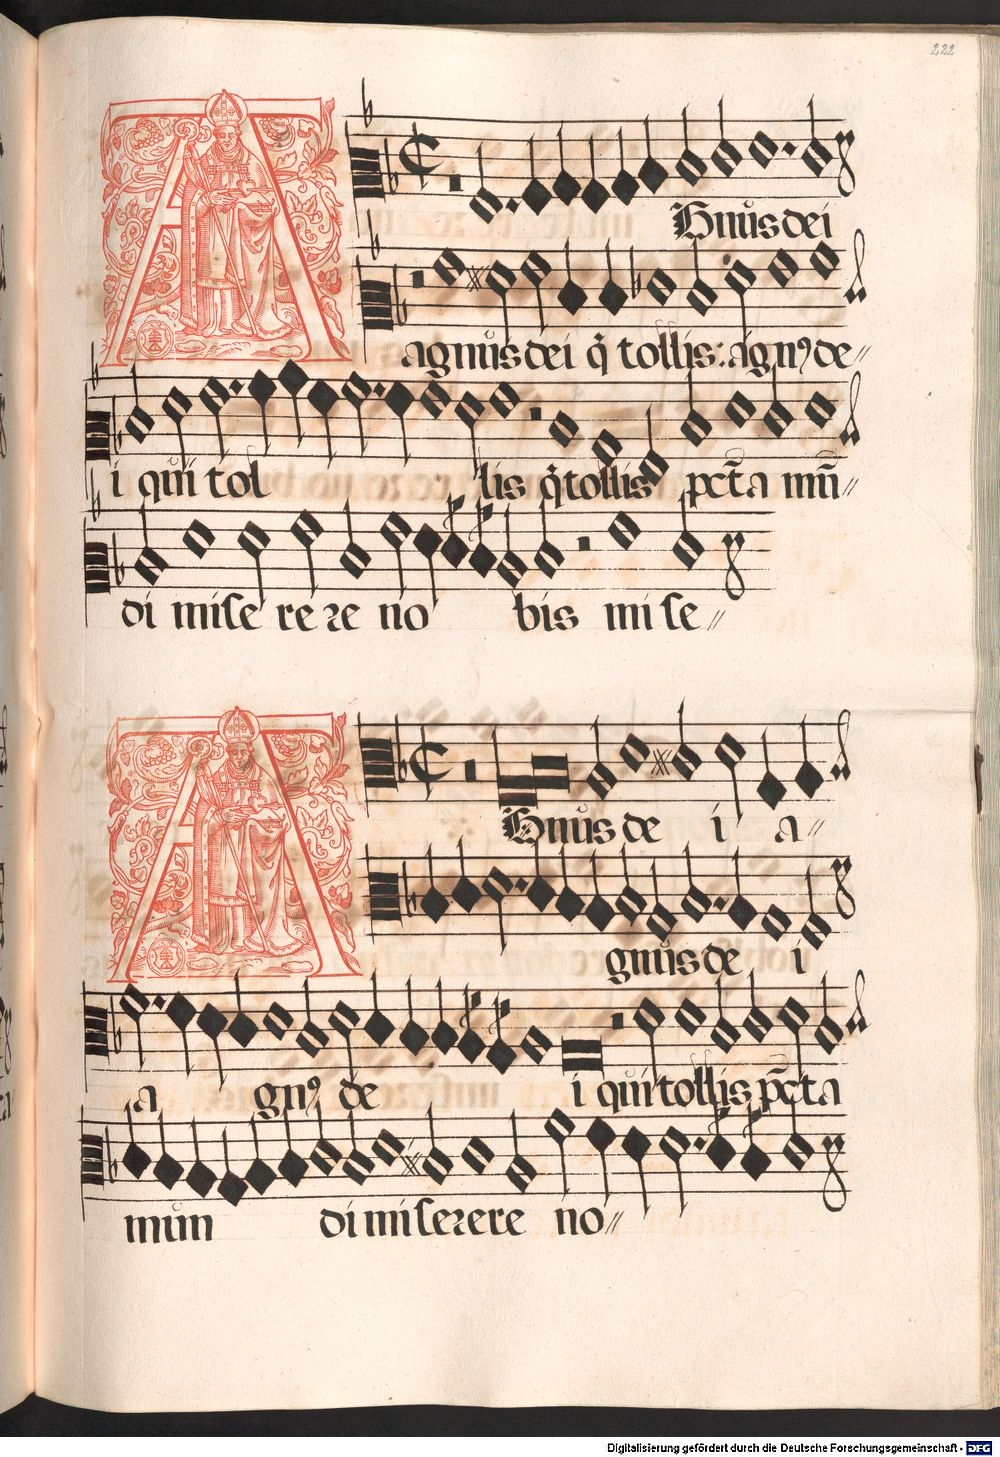 222
Agnus dei
agnus dei q̃ tollis: agn⁹ de
i qui tol lis q̃ tollis pcta mũ
di mise re re no bis mi se
Agnus de i a
gnus de i
a gn⁹ de i qui tollis pcta
mun di miserere no
Digitalisierung gefördert durch die Deutsche Forschungsgemeinschaft - DFG